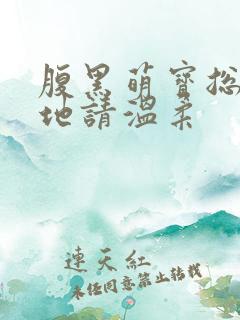 腹黑萌寶總
地請溫柔
連天紅
未经同意禁止转载